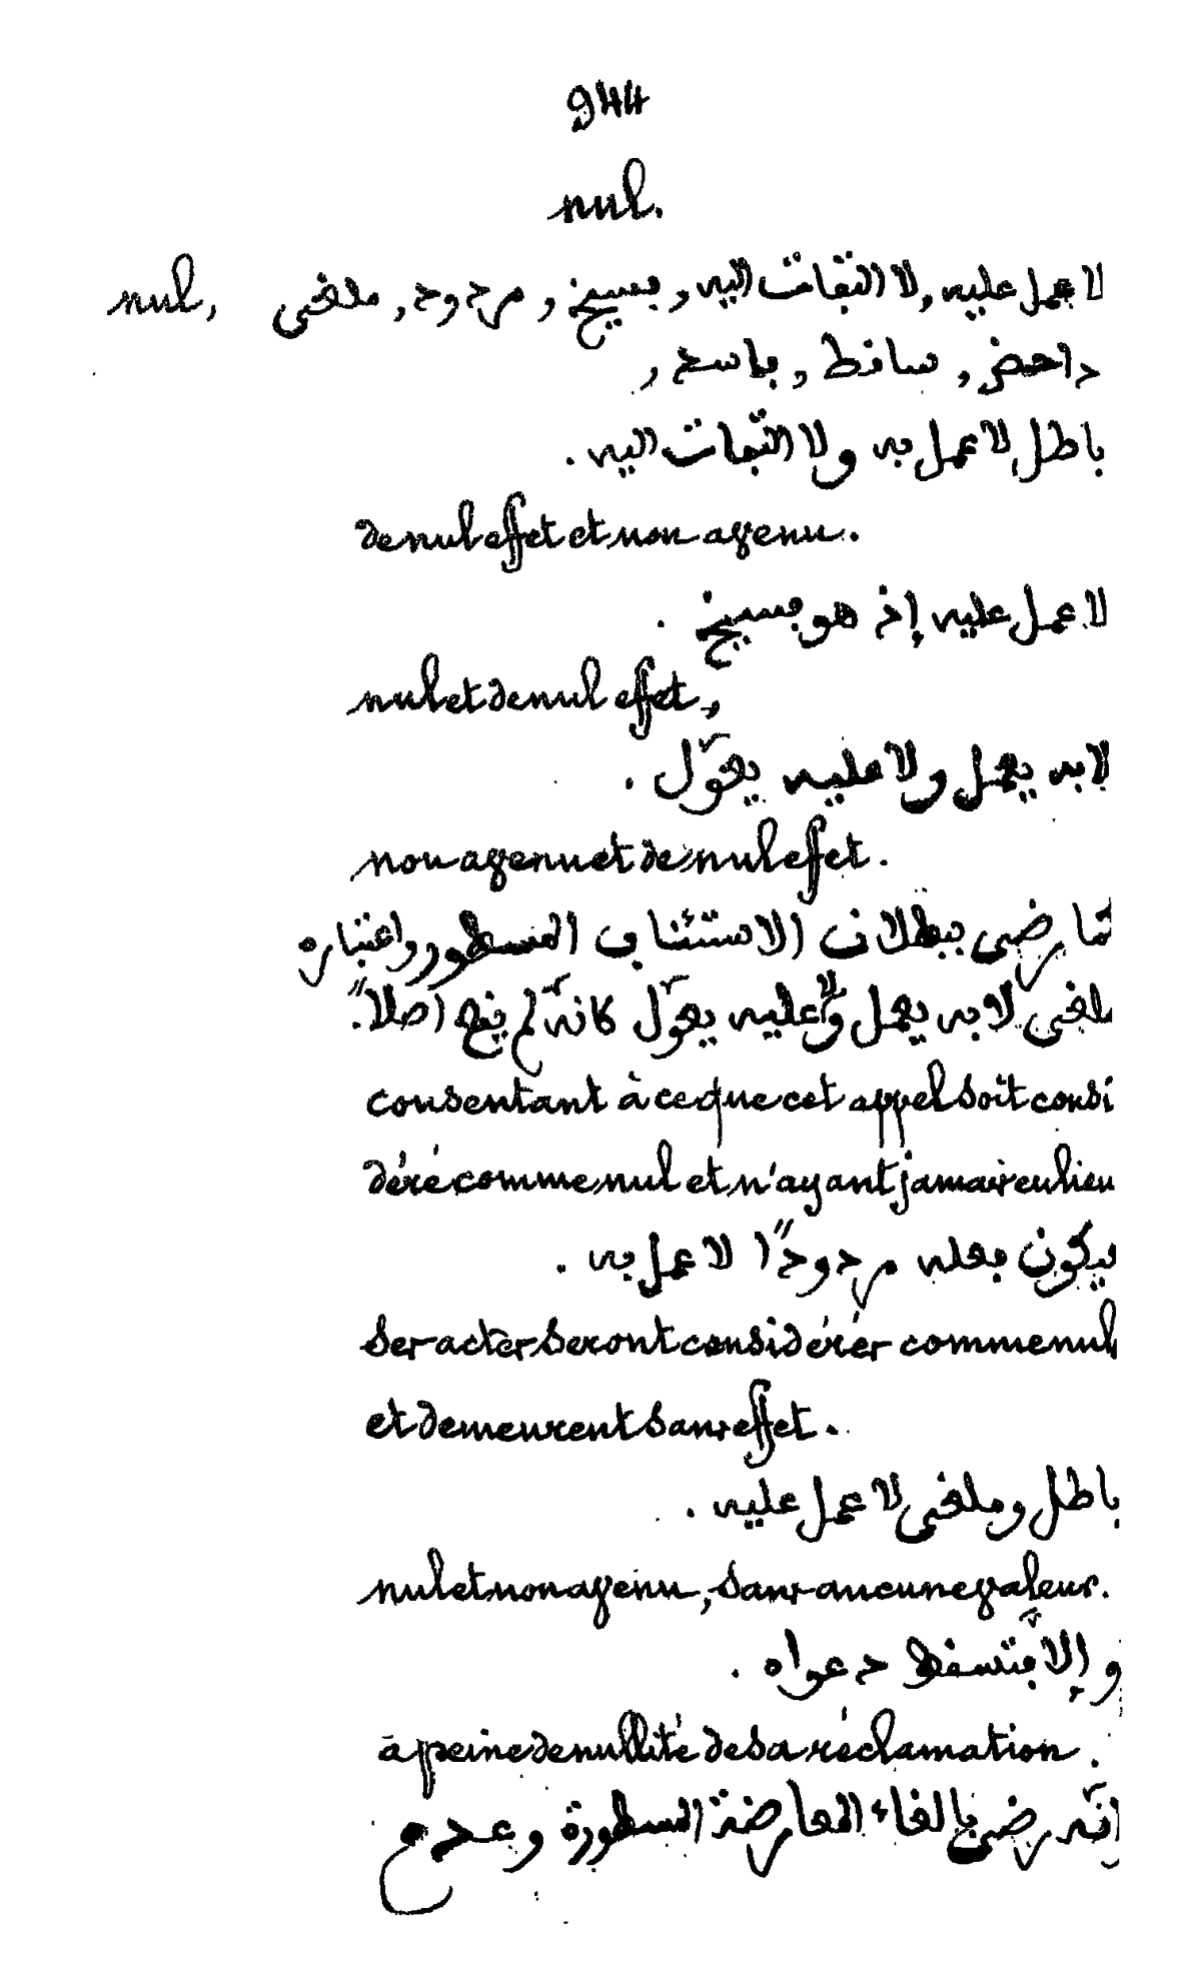 944
nul.
nul, لا عمل عليه, لا التفات اليه, فسيخ, مردود, ملغى
داحض, ساقط, فاسد,
باطل لا عمل به ولا التفات اليه.
de nul effet et non avenu.
لا عمل عليه إذ هو فسيخ.
nul et de nul effet,
لا به يعمل ولا عليه يعوّل.
non avenu et de nul effet.
كما رضى ببطلان الاستئناف المسطور واعتباره
ملغى لا به يعمل ولا عليه يعوّل كانّه لم يقع اصلاً.
consentant à ce que cet appel soit consi
déré comme nul et n'ayant jamais eu lieu
فيكون فعله مردودًا لا عمل به.
ses actes seront considérés comme nul
et demeurent sans effet.
باطل وملغى لا عمل عليه.
nul et non avenu, sans aucune valeur.
و إلاّ فتسقط دعواه.
à peine de nullité de sa réclamation.
انّه رضى بالغاء المعارضة المسطورة وعدم